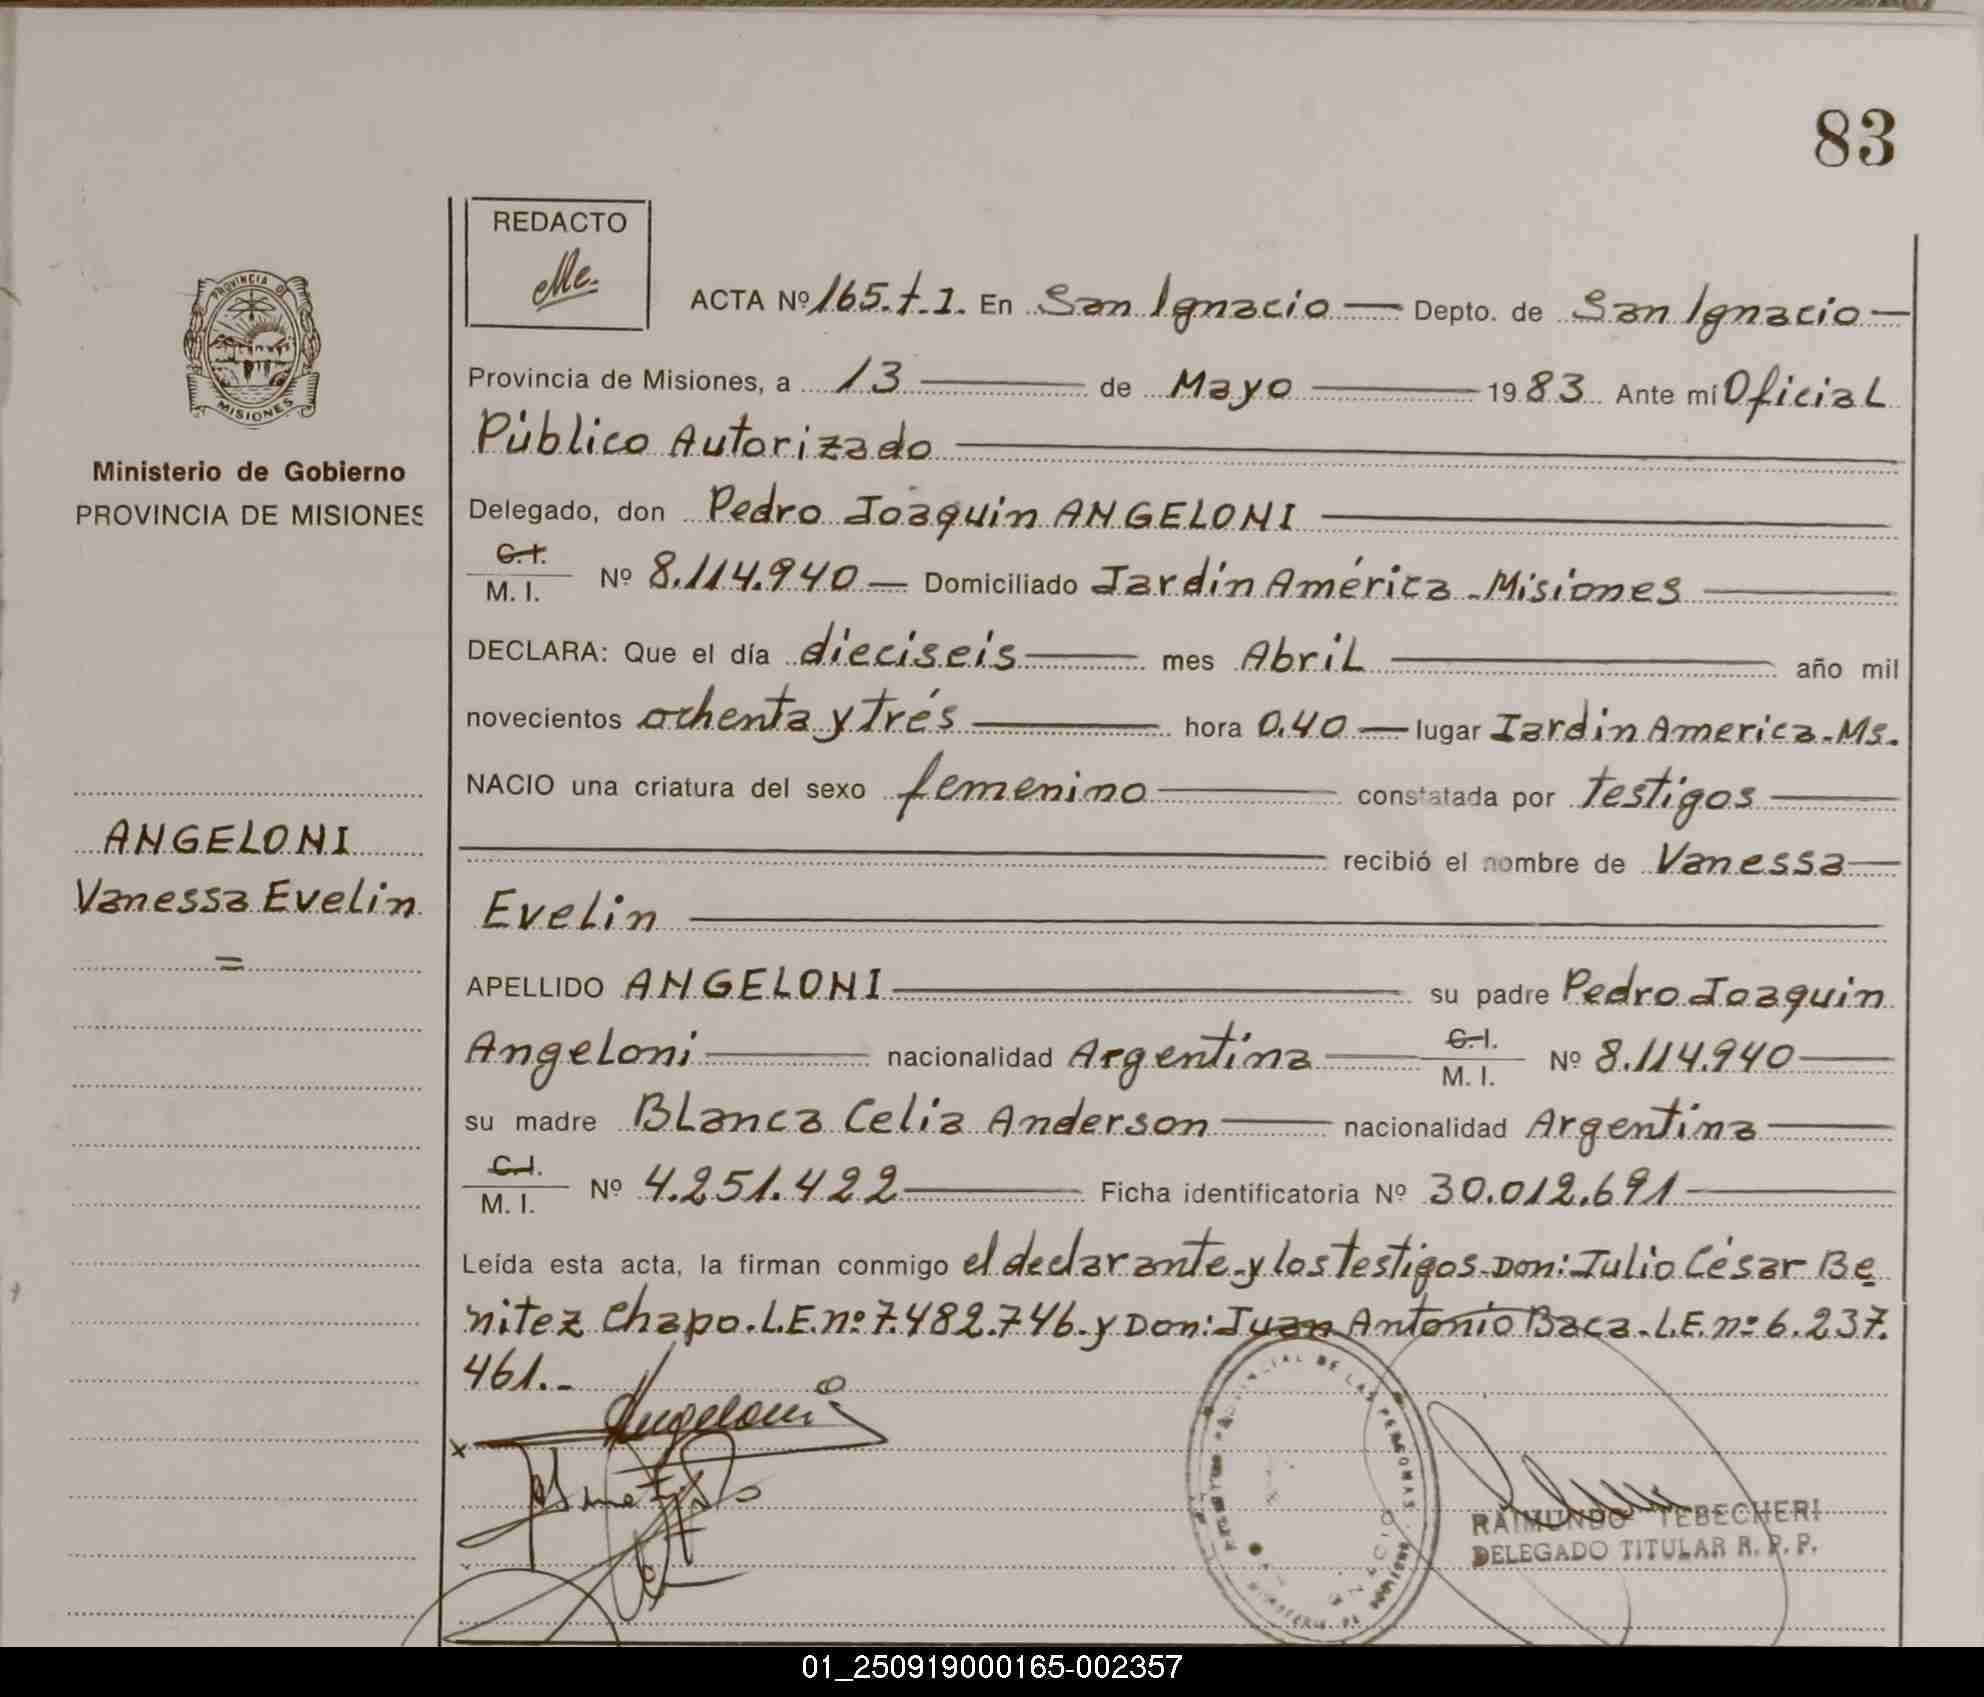 83
REDACTO
Me.
ACTA Nº 165.t.1. En San Ignacio — Depto. de San Ignacio —
Provincia de Misiones, a 13 — de Mayo — 1983 Ante mí Oficial
Público Autorizado —
Delegado, don Pedro Joaquin ANGELONI —
C.I.
M. I. Nº 8.114.940 — Domiciliado Jardín América - Misiones —
DECLARA: Que el día dieciseis — mes Abril — año mil
novecientos ochenta y trés — hora 0.40 — lugar Jardin America - Ms.
NACIO una criatura del sexo femenino — constatada por testigos —
— recibió el nombre de Vanessa —
Evelin —
APELLIDO ANGELONI — su padre Pedro Joaquin
Angeloni — nacionalidad Argentina — C.I. M. I. Nº 8.114.940 —
su madre Blanca Celia Anderson — nacionalidad Argentina —
C.I.
M. I. Nº 4.251.422 — Ficha identificatoria Nº 30.012.691 —
Leída esta acta, la firman conmigo el declarante y los testigos. Don: Julio César Be
nitez Chapo. L.E. nº 7.482.746. y Don: Juan Antonio Baca. L.E. nº 6.237.
461.-
PROVINCIA DE
MISIONES
Ministerio de Gobierno
PROVINCIA DE MISIONES
ANGELONI
Vanessa Evelin
=
x Angeloni
DE LAS PERSONAS
RAIMUNDO TEBECHERI
DELEGADO TITULAR R. P. P.
01_250919000165-002357